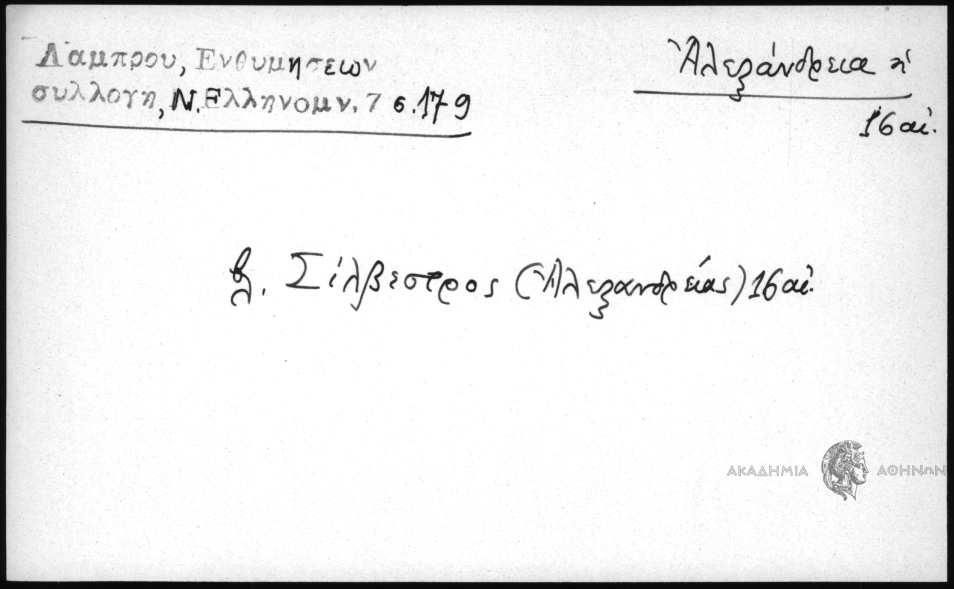 Λάμπρου, Ενθυμήσεων
συλλογη, Ν. Ελληνομν. 7 σ. 179
Ἀλεξάνδρεια ἡ
16 αἰ.
βλ. Σίλβεστρος (Ἀλεξανδρείας) 16 αἰ.
ΑΚΑΔΗΜΙΑ ΑΘΗΝΩΝ